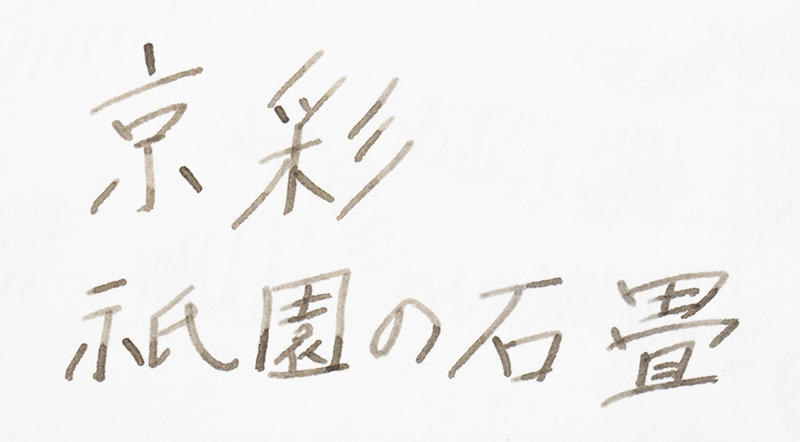 京彩
祇園の石畳